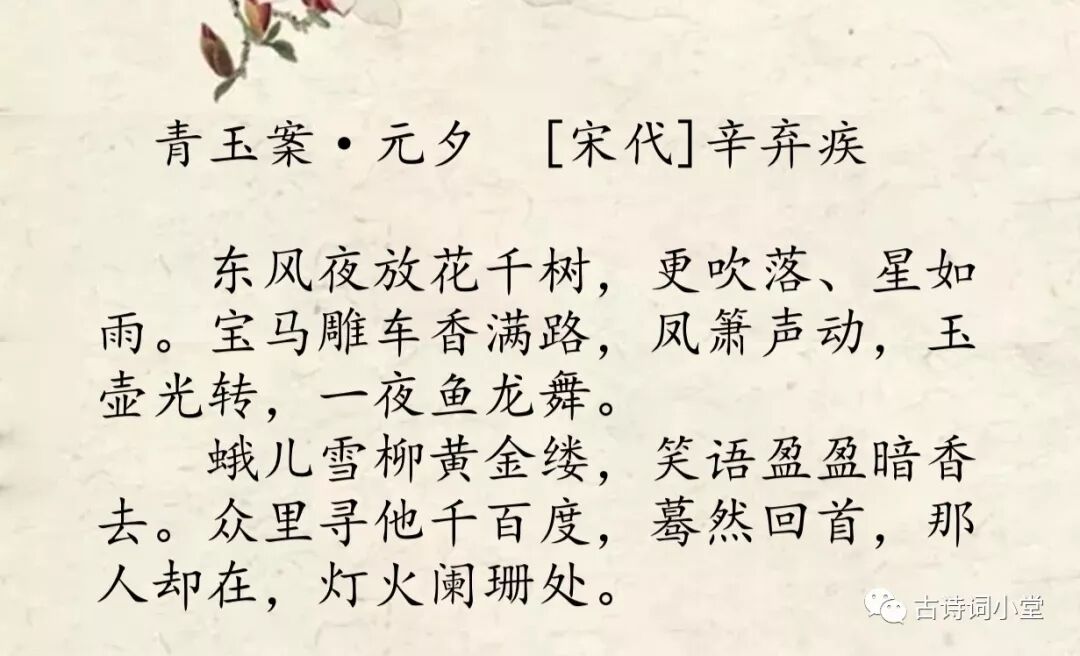 青玉案·元夕 [宋代]辛弃疾
东风夜放花千树，更吹落、星如
雨。宝马雕车香满路，凤箫声动，玉
壶光转，一夜鱼龙舞。
蛾儿雪柳黄金缕，笑语盈盈暗香
去。众里寻他千百度，蓦然回首，那
人却在，灯火阑珊处。
古诗词小堂